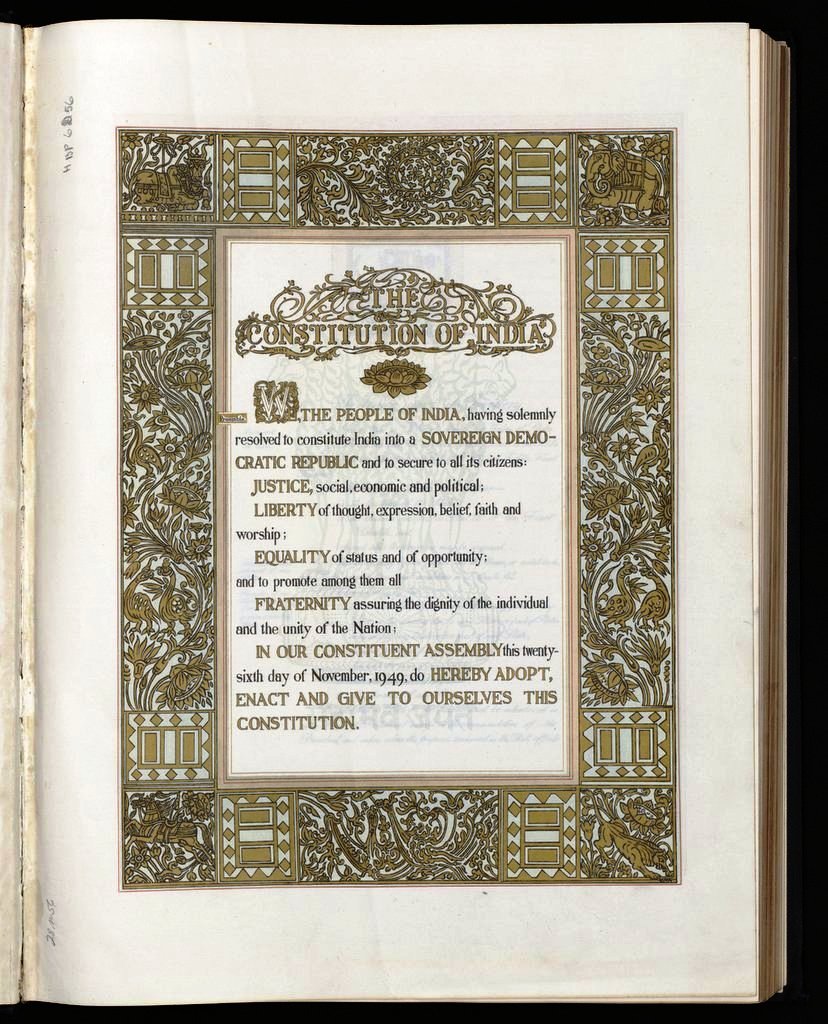 H BP 6 56
THE
CONSTITUTION OF INDIA
WE, THE PEOPLE OF INDIA, having solemnly
resolved to constitute India into a SOVEREIGN DEMO-
CRATIC REPUBLIC and to secure to all its citizens:
JUSTICE, social, economic and political;
LIBERTY of thought, expression, belief, faith and
worship;
EQUALITY of status and of opportunity;
and to promote among them all
FRATERNITY assuring the dignity of the individual
and the unity of the Nation;
IN OUR CONSTITUENT ASSEMBLY this twenty-
sixth day of November, 1949, do HEREBY ADOPT,
ENACT AND GIVE TO OURSELVES THIS
CONSTITUTION.